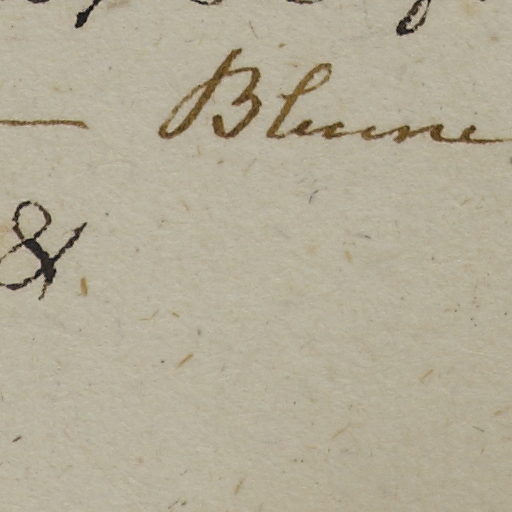 — Blume
&